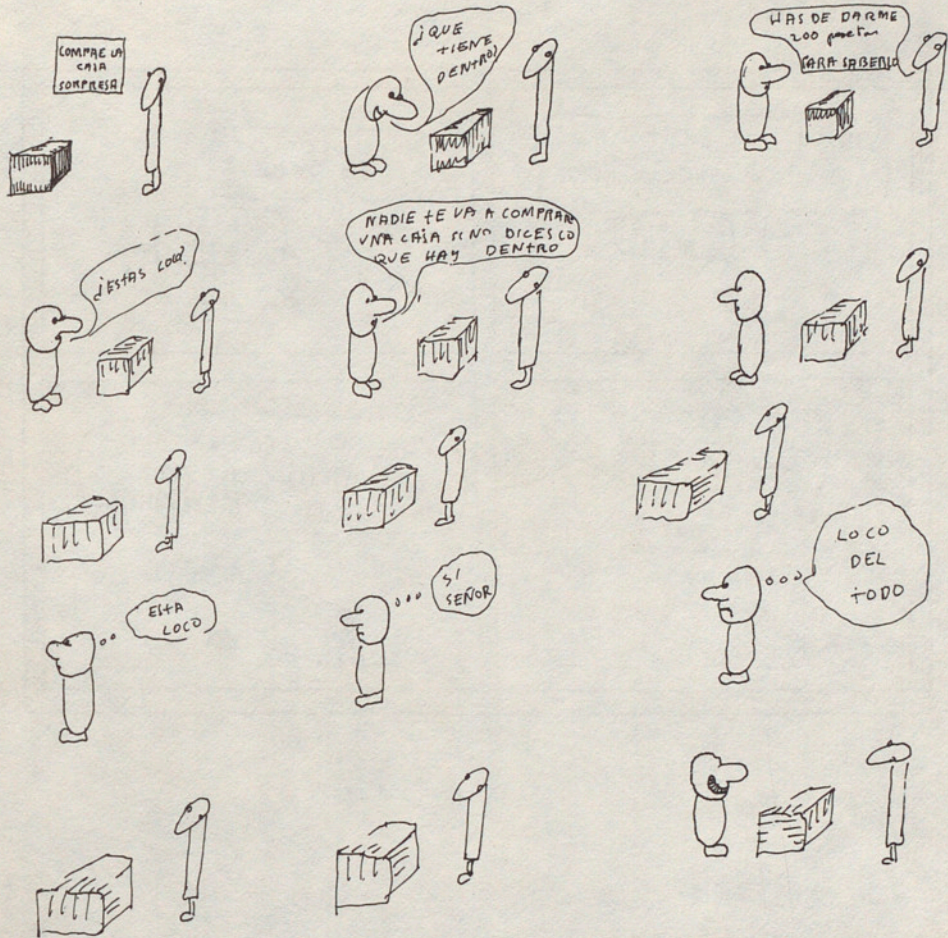 COMPRE LA
CAJA
SORPRESA
¿QUE
TIENE
DENTRO?
HAS DE DARME
200 pesetas
PARA SABERLO
¿ESTAS LOCO?
NADIE TE VA A COMPRAR
UNA CAJA SI NO DICES LO
QUE HAY DENTRO
ESTA
LOCO
SI
SEÑOR
LOCO
DEL
TODO